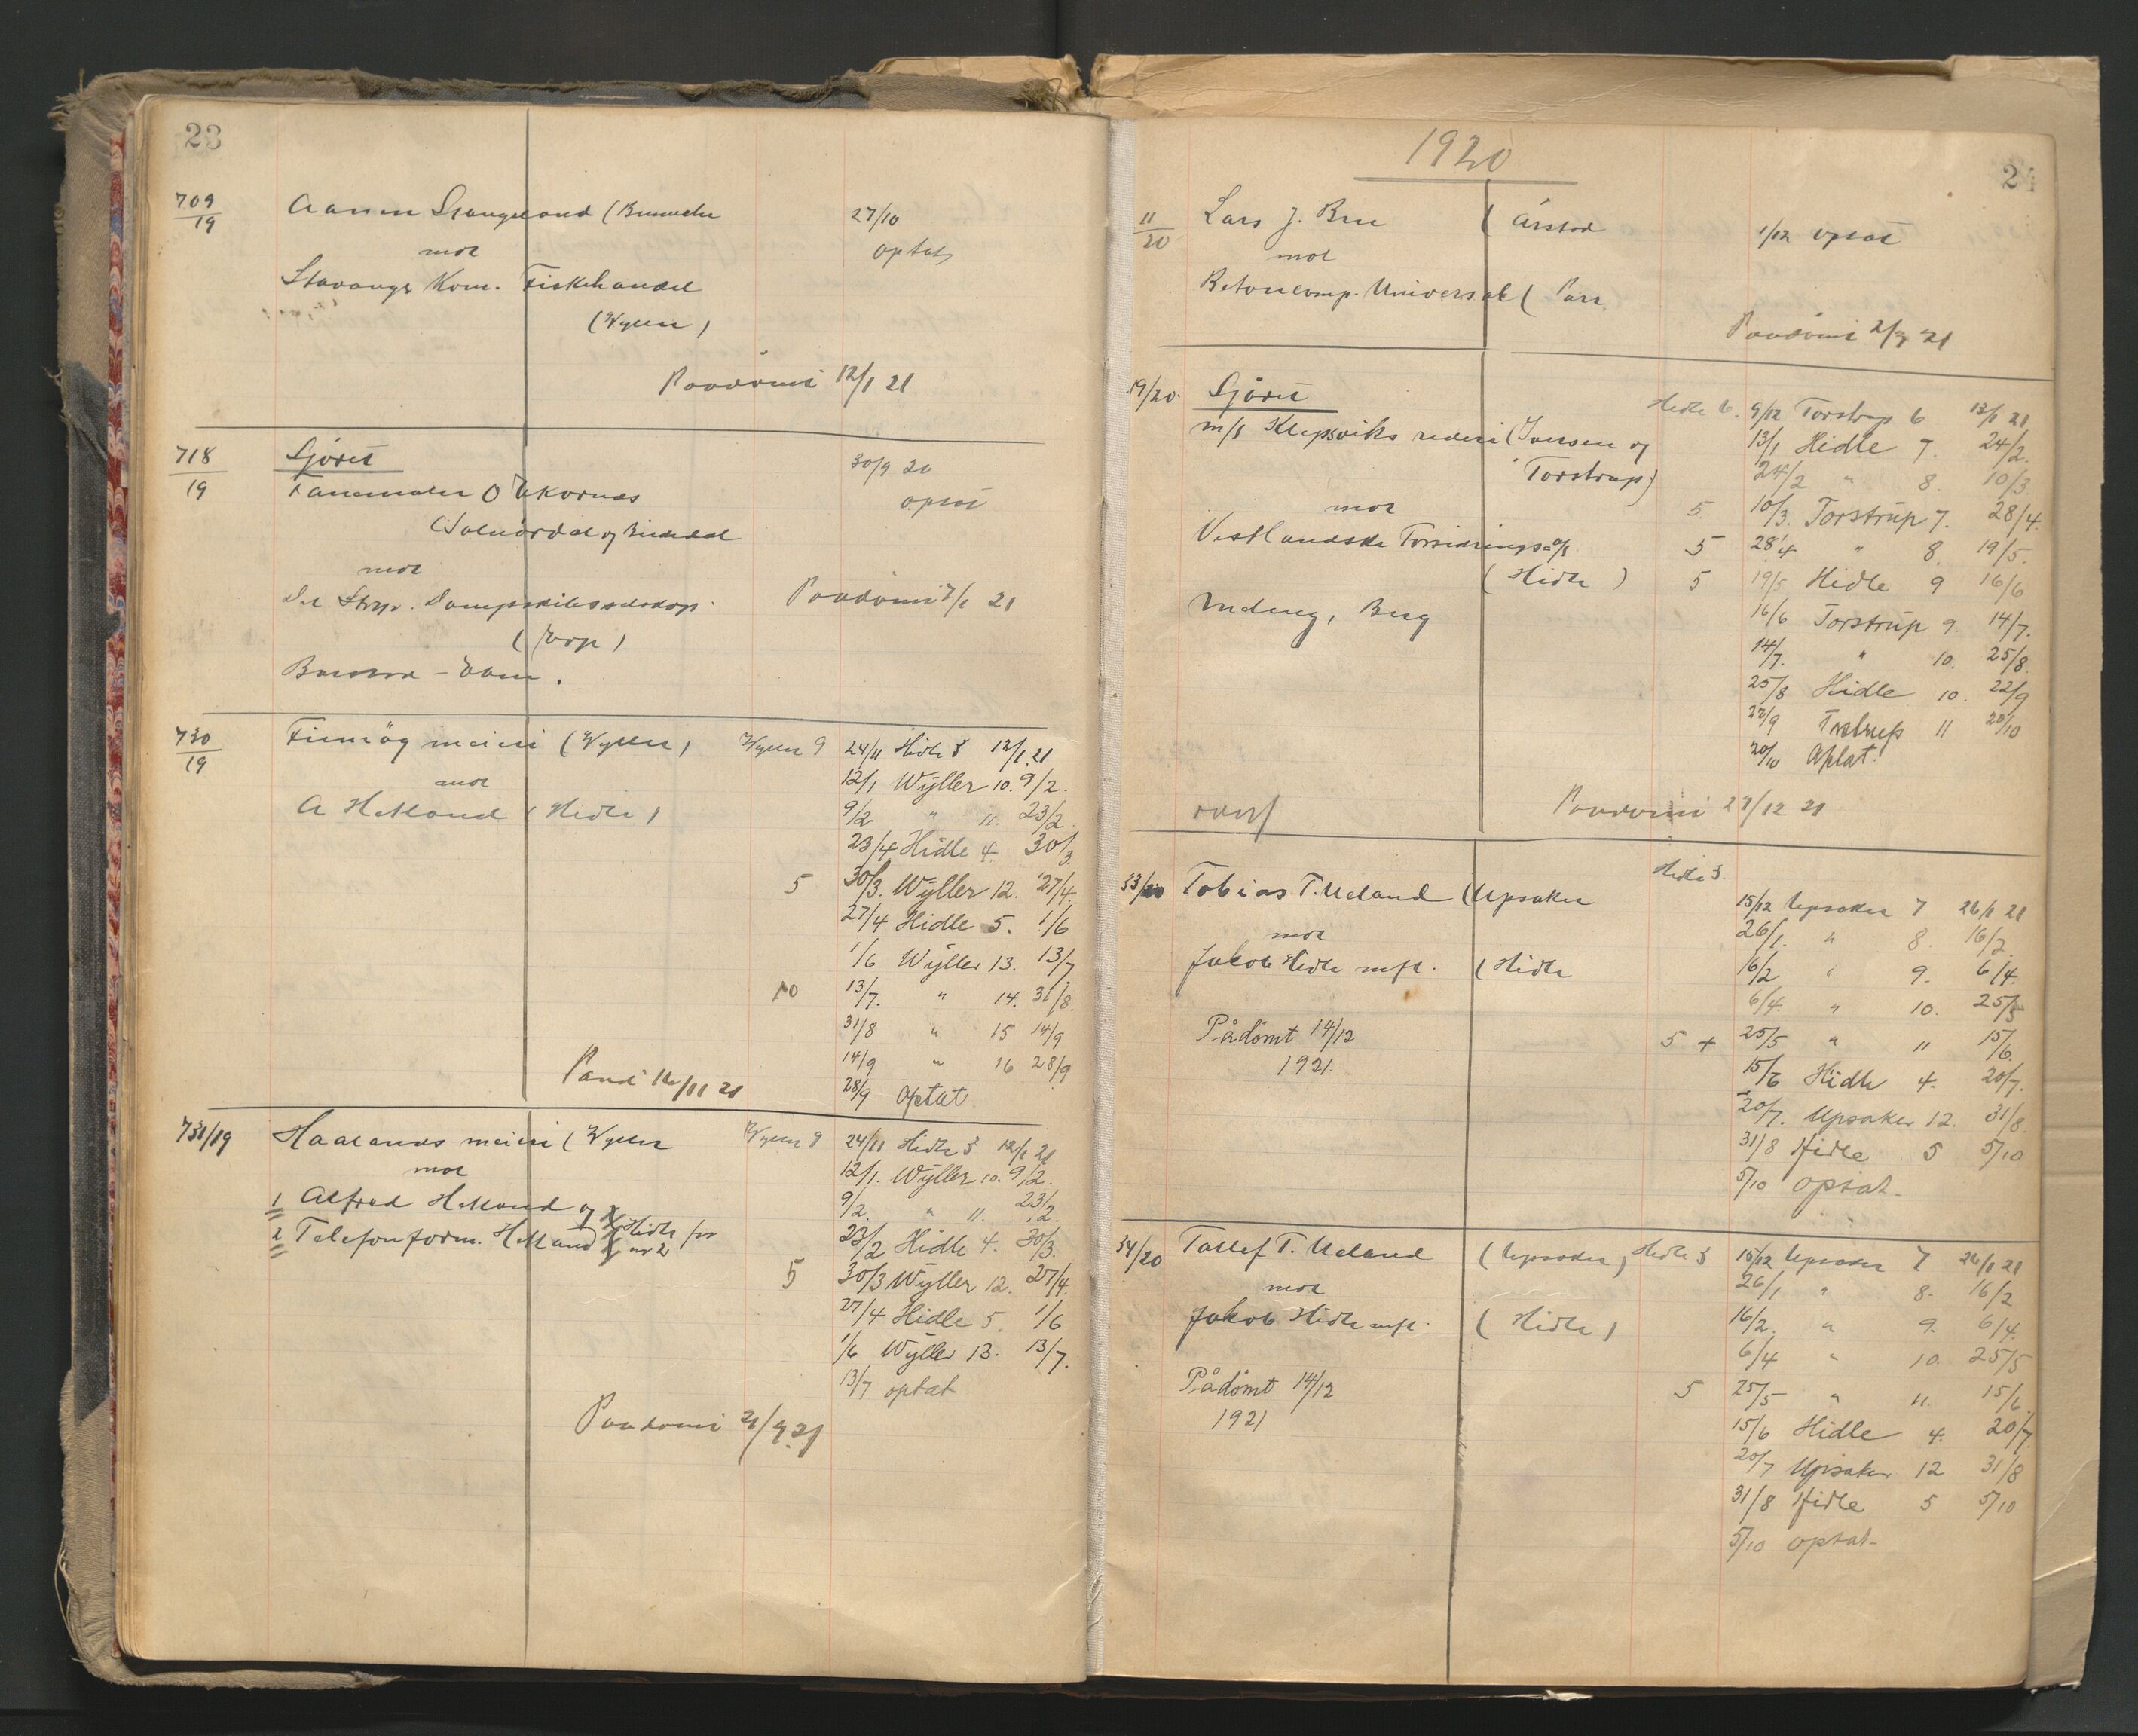 23
709
19
Stangeland
27/10
mot
optat
Stavanger Kom. Fiskehandel
(Wyller)
Paadömt 12/1 21
718
19
Sjöret
30/9 20
optat
mot
Det Stvgr. Dampskibsselskap
Paadömt 21
730
19
meieri (Wyller) Wyller 9 24/11 Hidle 3 12/1 21
mot 12/1 Wÿller 10. 9/2.
A Helland (Hidle) 9/2 " 11. 23/2
23/4 Hidle 4. 30/3.
5 30/3. Wÿller 12. 27/4.
27/4 Hidle 5. 1/6
1/6 Wÿller 13. 13/7
10 13/7. " 14. 31/8.
31/8 " 15 14/9
14/9 " 16 28/9
28/9 Optat
731/19 Haalands meieri (Wyller Wyller 9 24/11 Hidle 3 12/1 21
mot 12/1. Wÿller 10. 9/2.
1 Alfred Helland og 9/2. " 11. 23/2.
2 Telefonform. Helland Hidle for nr 2
23/2 Hidle 4. 30/3.
5 30/3 Wÿller 12. 27/4.
27/4 Hidle 5. 1/6
1/6 Wÿller 13. 13/7.
13/7 optat
Paadömt 21
1920
24
11
20
Lars J. Bru (Årstad 1/12 optat
mot
Betoncomp. Universal (
Paadömt 21
19/20. Sjöret
Hidle 6. 9/12 Torstrup 6 13/1 21
m/s Klepsviks rederi (Iversen og 13/1 Hidle 7. 24/2.
Torstrup) 24/2 " 8. 10/3.
mot 5. 10/3. Torstrup 7. 28/4.
Vestlandske 5 28/4 " 8. 19/5.
(Hidle) 5 19/5 Hidle 9 16/6
Berg 16/6 Torstrup 9. 14/7.
14/7. " 10. 25/8.
25/8 Hidle 10. 22/9
22/9 Torstrup 11 20/10
20/10 Optat.
Paadömt 21
33/20 Tobias T. Ueland (Upsaker Hidle 3. 15/12 Upsaker 7 26/1 21
mot 26/1. " 8. 16/2.
Jakob Hidle mfl. (Hidle 16/2 " 9. 6/4.
6/4. " 10. 25/5
Pådömt 14/12 5 + 25/5 " 11 15/6.
1921. 15/6 Hidle 4. 20/7.
20/7. Upsaker 12. 31/8.
31/8 Hidle 5 5/10
5/10 optat.
34/20 Tallef T. Ueland (Upsaker) Hidle 3 15/12 Upsaker 7 26/1 21
mot 26/1 " 8. 16/2
Jakob Hidle mfl. (Hidle) 16/2. " 9. 6/4.
6/4 " 10. 25/5
Pådömt 14/12 5 25/5 " 11. 15/6
1921 15/6 Hidle 4. 20/7
20/7 Upsaker 12 31/8
31/8 Hidle 5 5/10
5/10 optat.